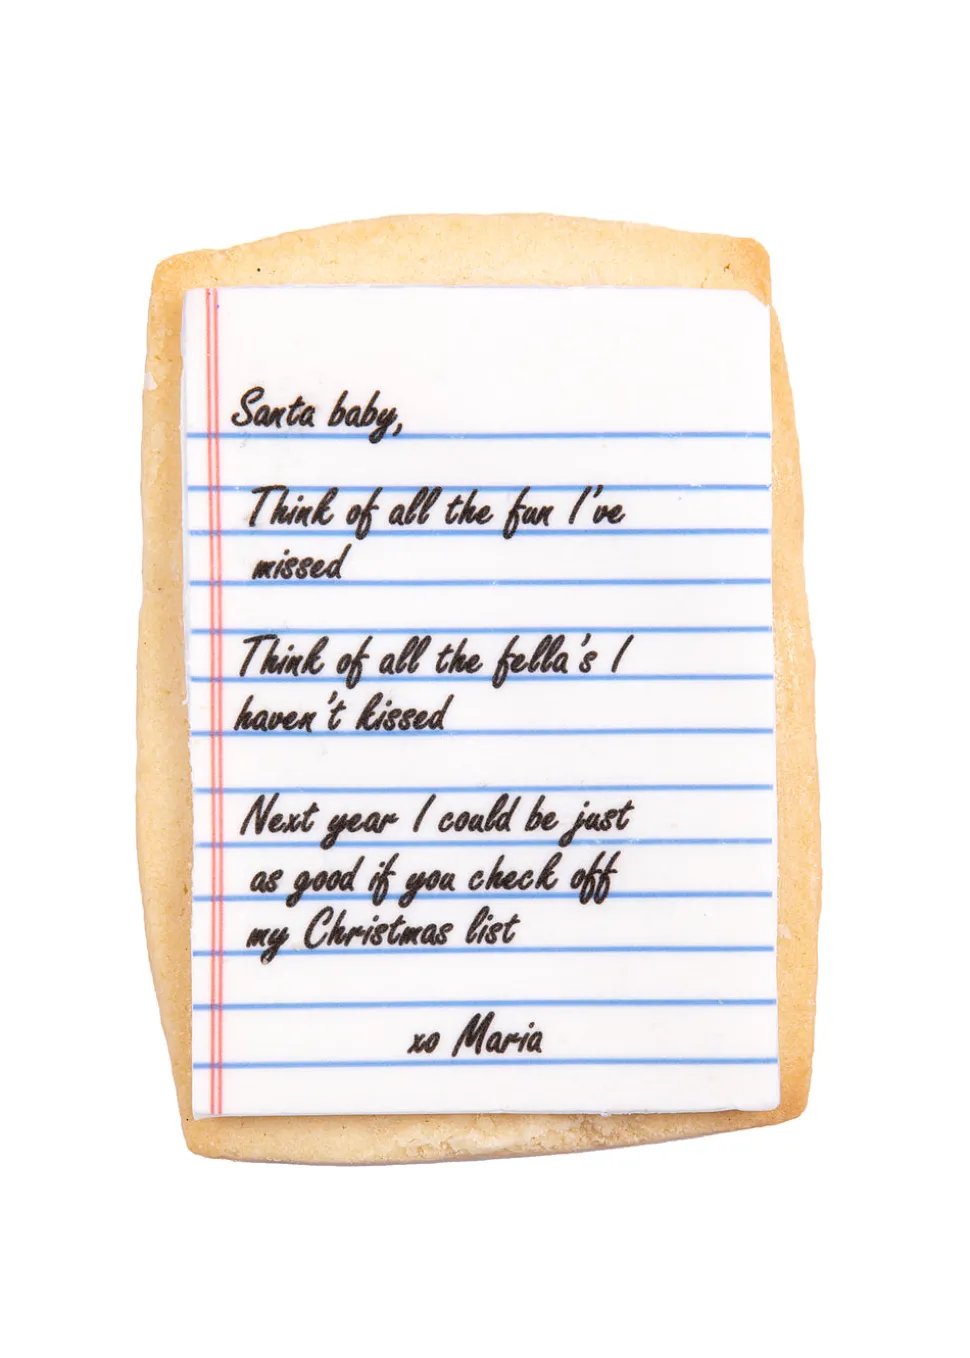 Santa baby,
Think of all the fun I've
missed
Think of all the fella's I
haven't kissed
Next year I could be just
as good if you check off
my Christmas list
xo Maria